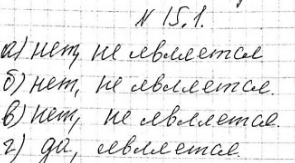 N 15.1.
а) нет, не является
б) нет, не является.
в) нет, не является.
г) да, является.